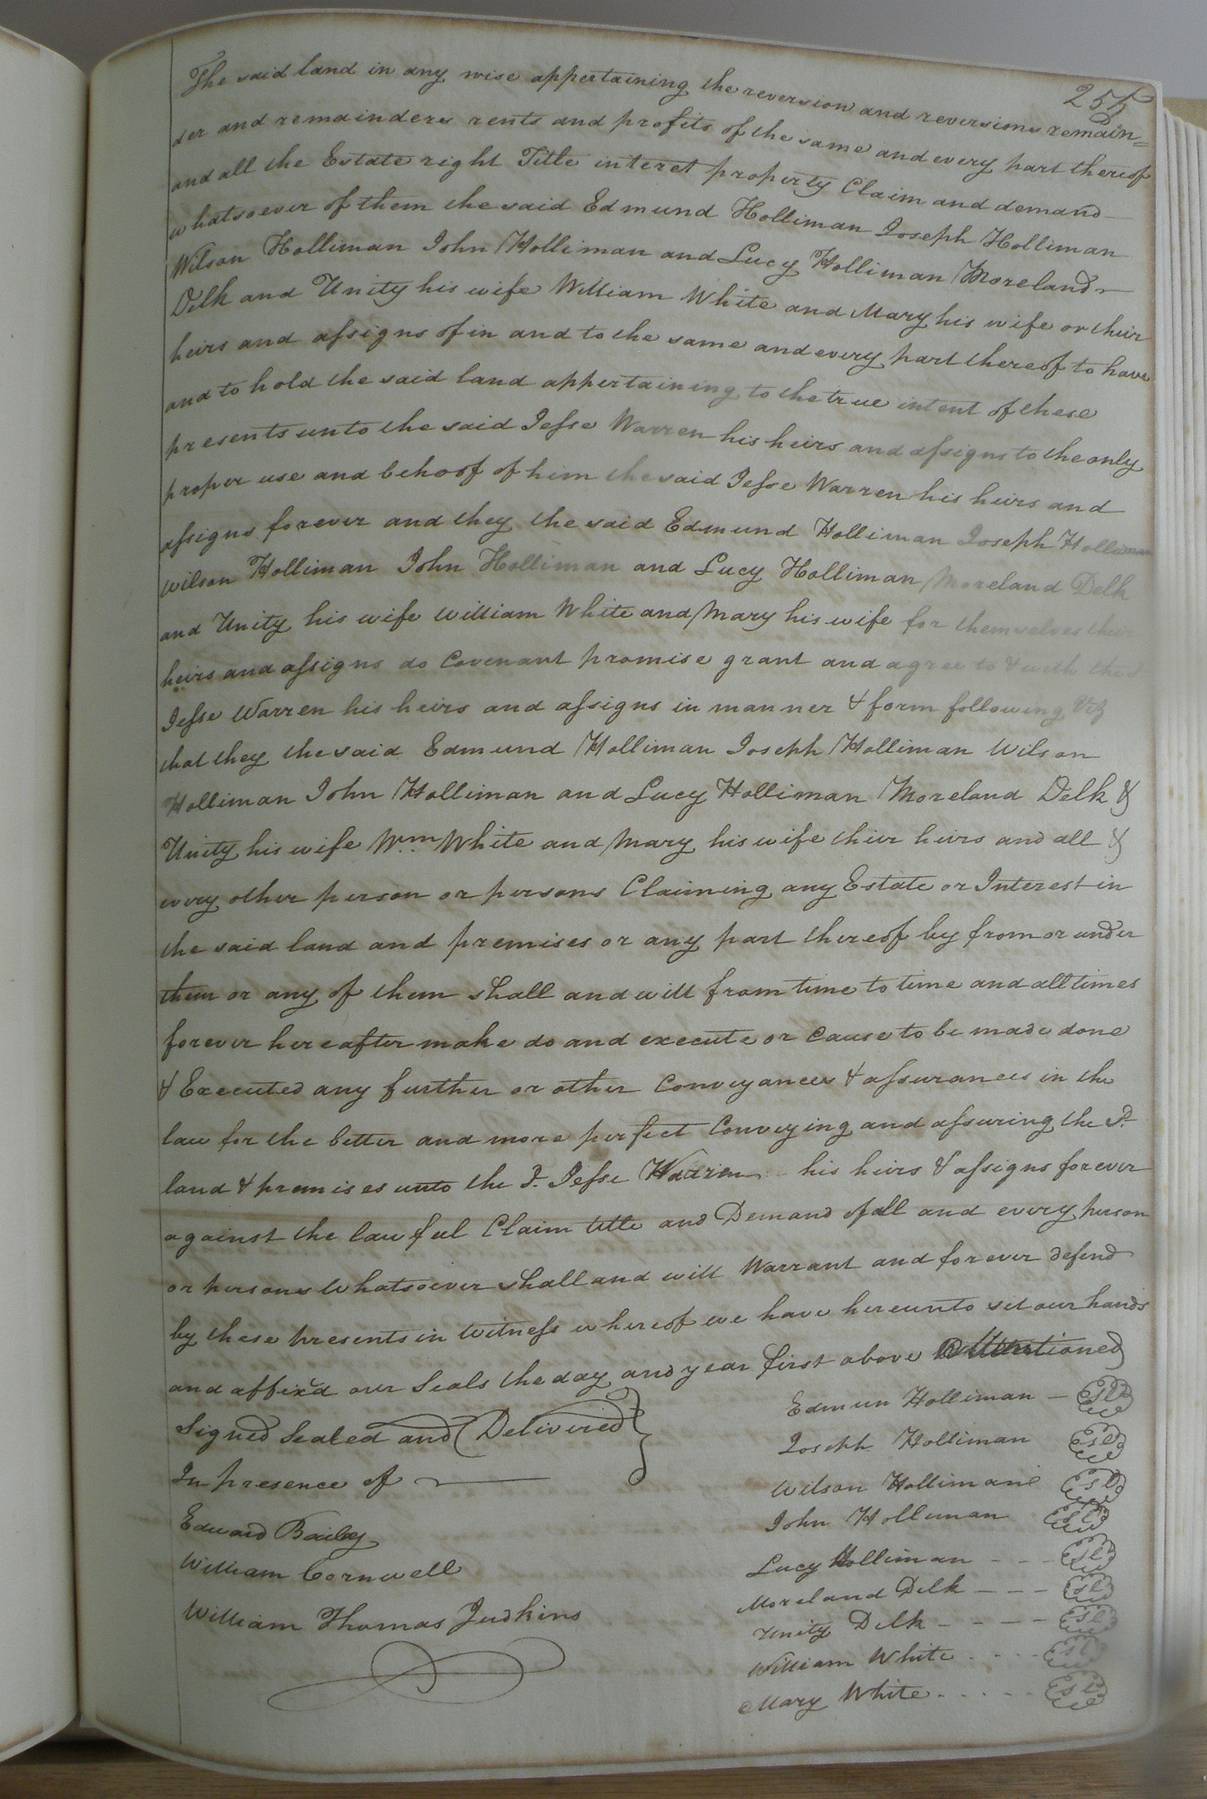 255
The said land in any wise appertaining the reversion and reversions remain=
der and remainders rents and profits of the same and every part thereof
and all the Estate right Title interest property Claim and demand
whatsoever of them the said Edmund Holliman Joseph Holliman
Wilson Holliman John Holliman and Lucy Holliman Moreland
Delk and Unity his wife William White and Mary his wife or their
heirs and assigns of in and to the same and every part thereof to have
and to hold the said land appertaining to the true intent of these
presents unto the said Jesse Warren his heirs and assigns to the only
proper use and behoof of him the said Jesse Warren his heirs and
assigns forever and they the said Edmund Holliman Joseph Holliman
Wilson Holliman John Holliman and Lucy Holliman Moreland Delk
and Unity his wife William White and Mary his wife for themselves
heirs and assigns do Covenant promise grant and agree to & with the
Jesse Warren his heirs and assigns in manner & form following Viz
that they the said Edmund Holliman Joseph Holliman Wilson
Holliman John Holliman and Lucy Holliman Moreland Delk &
Unity his wife Wm White and Mary his wife their heirs and all &
every other person or persons Claiming any Estate or Interest in
the said land and premises or any part thereof by from or under
them or any of them shall and will from time to time and all times
forever hereafter make do and execute or cause to be made done
& Executed any further or other Conveyances & assurances in the
law for the better and more perfect Conveying and assuring the sd.
land & premises unto the sd. Jesse Warren his heirs & assigns forever
against the lawful Claim title and Demand of all and every person
or persons Whatsoever shall and will Warrant and forever defend
by these presents in Witness whereof we have hereunto set our hands
and affix'd our Seals the day and year first above Mentioned
Signed Sealed and Delivered }
In presence of
Edward Bailey
William Cornwell
William Thomas Judkins
Edmun Holliman — Sl
Joseph Holliman Sl
Wilson Holliman Sl
John Holliman Sl
Lucy Holliman - - - Sl
Moreland Delk - - - Sl
Unity Delk - - - - Sl
William White . . . . Sl
Mary White . . . . . Sl